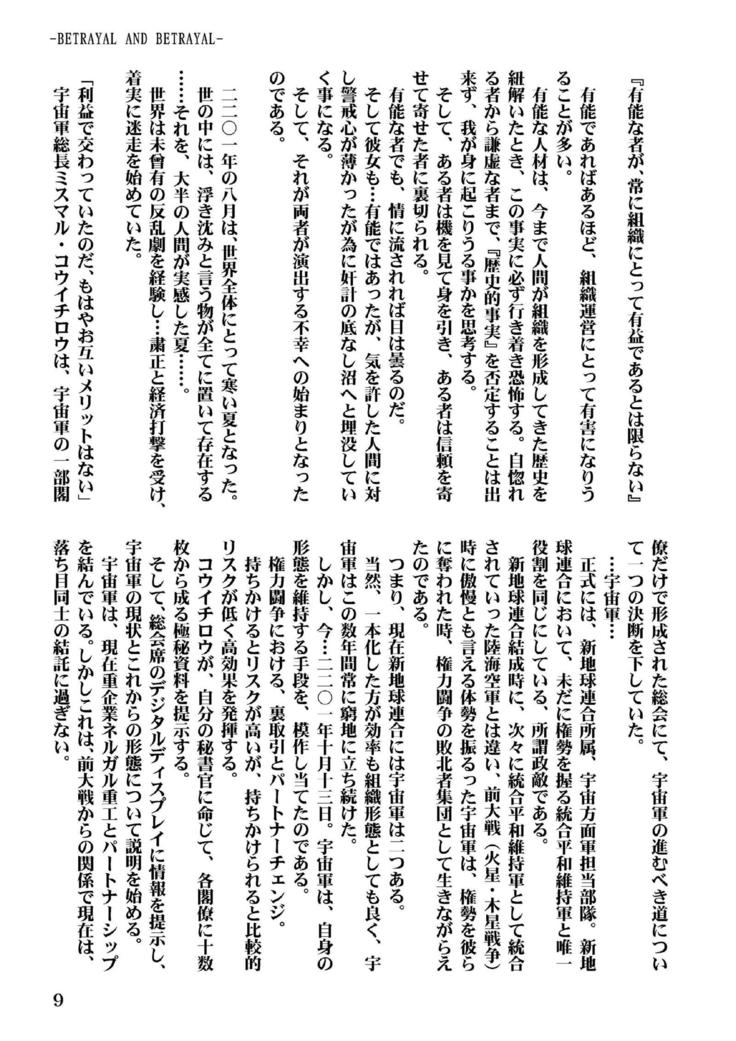 -BETRAYAL AND BETRAYAL-
『有能な者が、常に組織にとって有益であるとは限らない』
有能であればあるほど、組織運営にとって有害になりう
ることが多い。
有能な人材は、今まで人間が組織を形成してきた歴史を
紐解いたとき、この事実に必ず行き着き恐怖する。自惚れ
る者から謙虚な者まで、『歴史的事実』を否定することは出
来ず、我が身に起こりうる事かを思考する。
そして、ある者は機を見て身を引き、ある者は信頼を寄
せて寄せた者に裏切られる。
有能な者でも、情に流されれば目は曇るのだ。
そして彼女も…有能ではあったが、気を許した人間に対
し警戒心が薄かったが為に奸計の底なし沼へと埋没してい
く事になる。
そして、それが両者が演出する不幸への始まりとなった
のである。
二二〇一年の八月は、世界全体にとって寒い夏となった。
世の中には、浮き沈みと言う物が全てに置いて存在する
……それを、大半の人間が実感した夏……。
世界は未曾有の反乱劇を経験し…粛正と経済打撃を受け、
着実に迷走を始めていた。
「利益で交わっていたのだ、もはやお互いメリットはない」
宇宙軍総長ミスマル・コウイチロウは、宇宙軍の一部閣
僚だけで形成された総会にて、宇宙軍の進むべき道につい
て一つの決断を下していた。
…宇宙軍…
正式には、新地球連合所属、宇宙方面軍担当部隊。新地
球連合において、未だに権勢を握る統合平和維持軍と唯一
役割を同じにしている、所謂政敵である。
新地球連合結成時に、次々に統合平和維持軍として統合
されていった陸海空軍とは違い、前大戦（火星・木星戦争）
時に傲慢とも言える体勢を振るった宇宙軍は、権勢を彼ら
に奪われた時、権力闘争の敗北者集団として生きながらえ
たのである。
つまり、現在新地球連合には宇宙軍は二つある。
当然、一本化した方が効率も組織形態としても良く、宇
宙軍はこの数年間常に窮地に立ち続けた。
しかし、今…二二〇一年十月十三日。宇宙軍は、自身の
形態を維持する手段を、模作し当てたのである。
権力闘争における、裏取引とパートナーチェンジ。
持ちかけるとリスクが高いが、持ちかけられると比較的
リスクが低く高効果を発揮する。
コウイチロウが、自分の秘書官に命じて、各閣僚に十数
枚から成る極秘資料を提示する。
そして、総会席のデジタルディスプレイに情報を提示し、
宇宙軍の現状とこれからの形態について説明を始める。
宇宙軍は、現在重企業ネルガル重工とパートナーシップ
を結んでいる。しかしこれは、前大戦からの関係で現在は、
落ち目同士の結託に過ぎない。
9